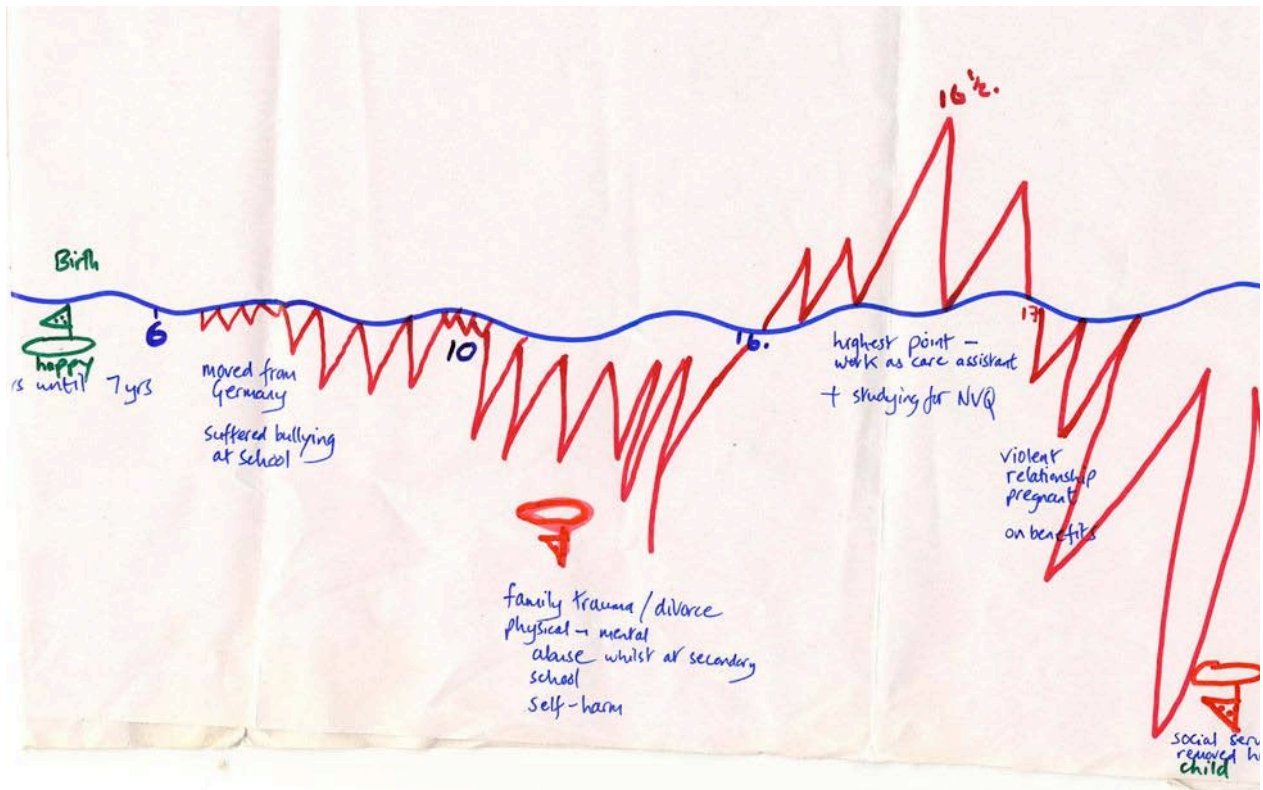 Birth
6
happy
until 7yrs
moved from
Germany
suffered bullying
at school
10
family trauma / divorce
physical - mental
abuse whilst at secondary
school
self-harm
16.
16 1/2.
highest point -
work as care assistant
+ studying for NVQ
17
violent
relationship
pregnant
on benefits
social
removed
child